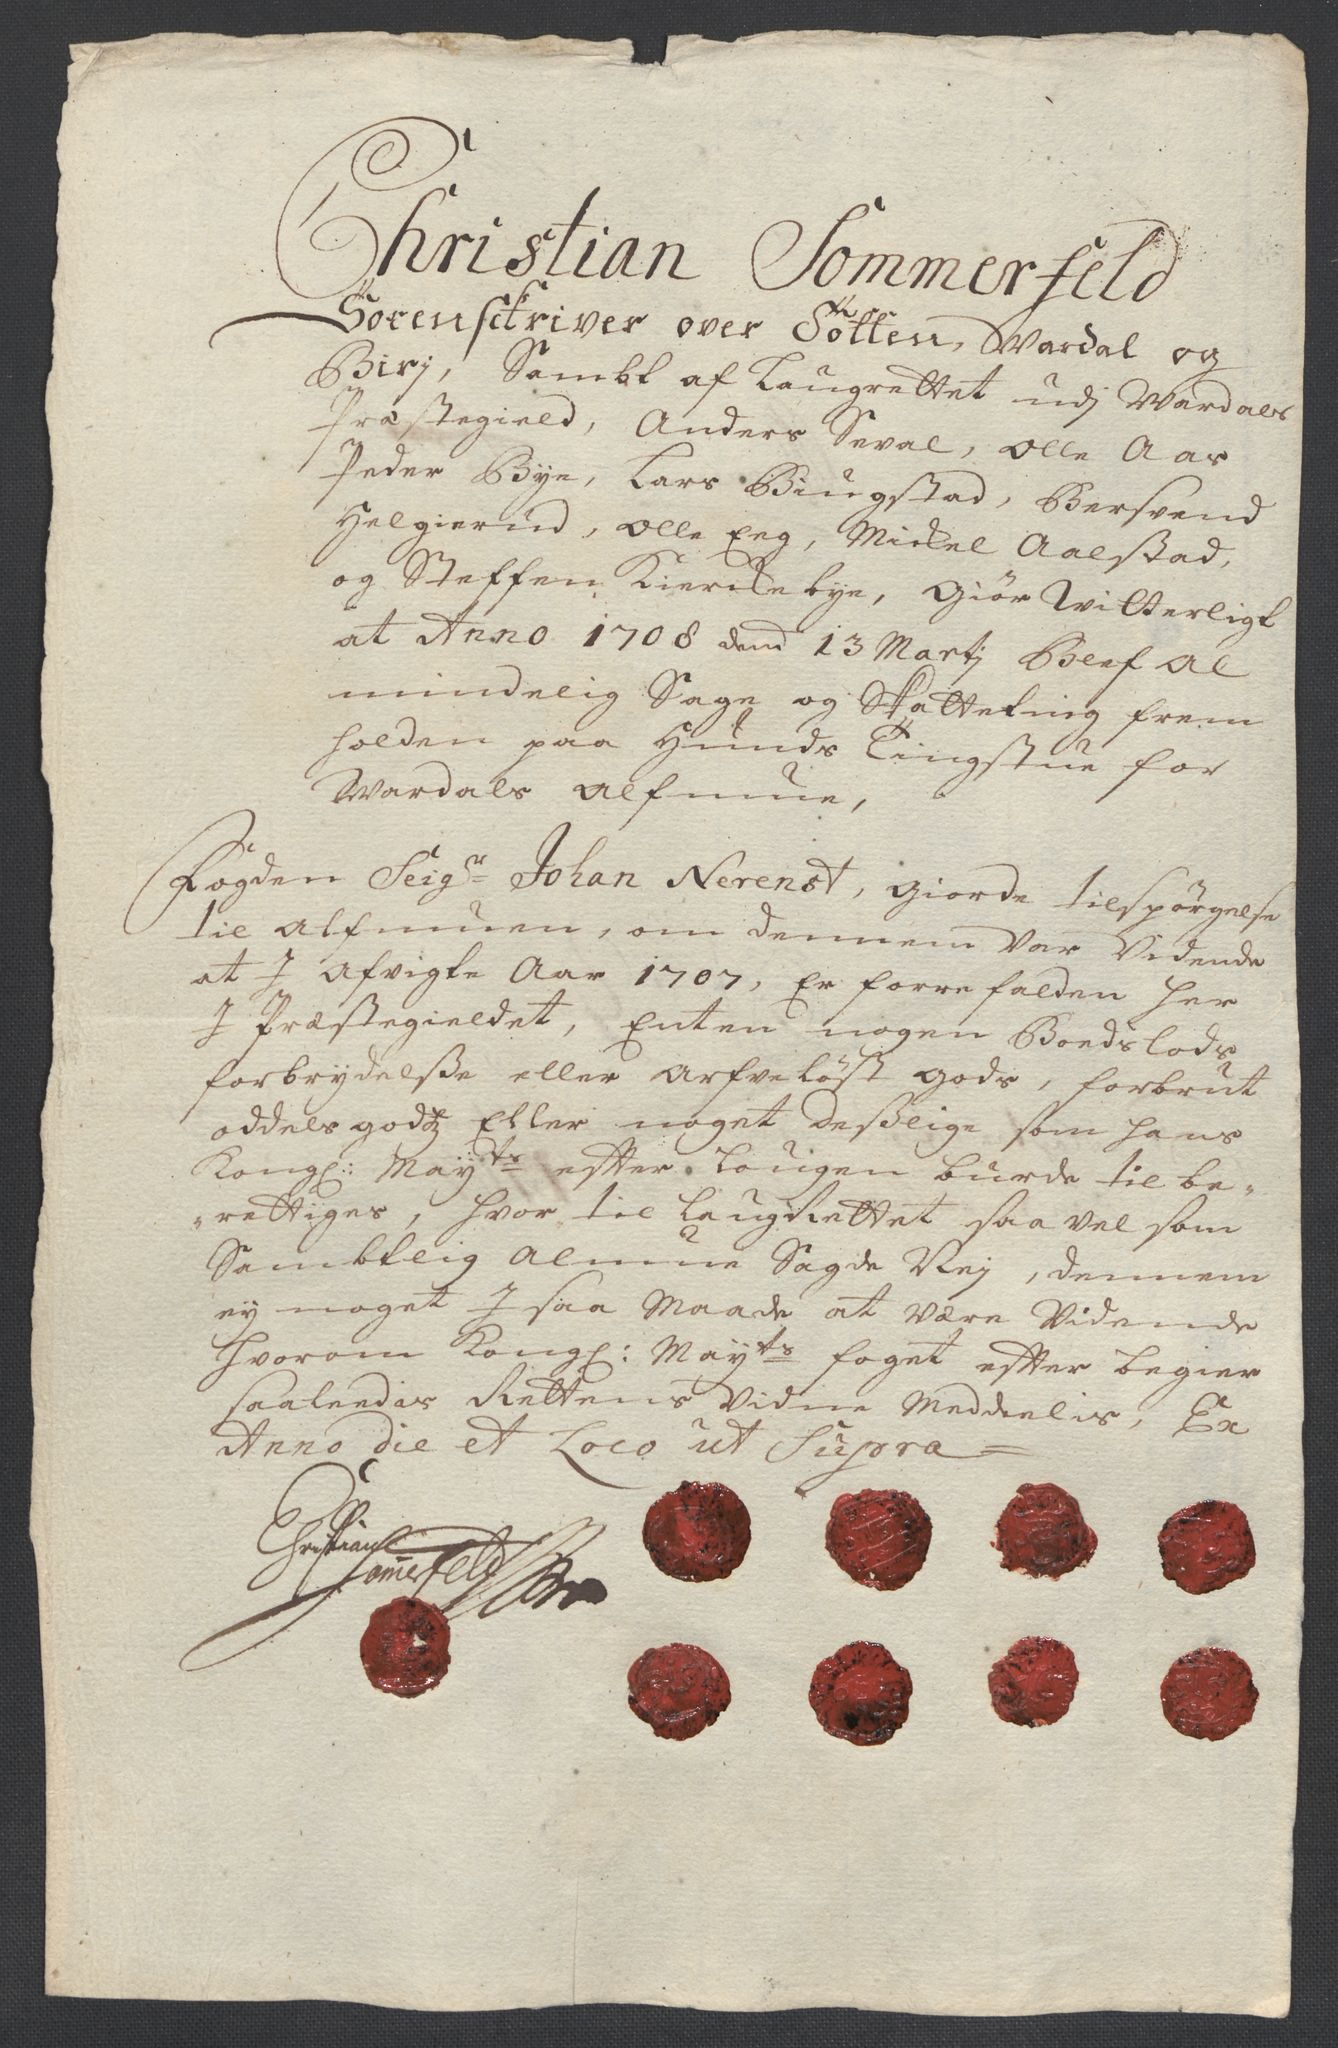 Christian Sommerfeld
Sorenschriver over Totten, Wardal og
Birj, Sambt af Laugrettet udj Wardals
Præstegield, Anders Seval, Olle Aas
Peder Bÿe, Lars Biugstad, Bersvend
Helgierud, Olle Eeg, Mickel Aalstad,
og Steffen Kierckebye, giör Witterligt
at Anno 1708 dend 13 Martj Blef Al
mindelig Sage og Skatteting frem
holden paa Hunds Tingstue for
Wardals Almue,
Fogden Seigr Johan Nerenst, giorde tilspörgelse
til Almuen, om dennem var Vidende
at J Afvigte Aar 1707, Er forrefalden her
J Præstegieldet, Enten nogen Boedslods
forbrydelsse eller Arfveløst gods, forbrut
oddels godtz Eller noget deslige som hans
Kongl: Mayts efter Lougen burde til be-
-rettiges, hvor til LaugRettet saa vel som
Sambtlig Almue Sagde Nej, dennem
ey noget J saa Maade at være Vidende
hvorom Kongl: Mayts foget efter begier
saaleedis Rettens Vidne Meddeelis, Ex
Anno die et Loco ut Supra
Christian
Somerfeld